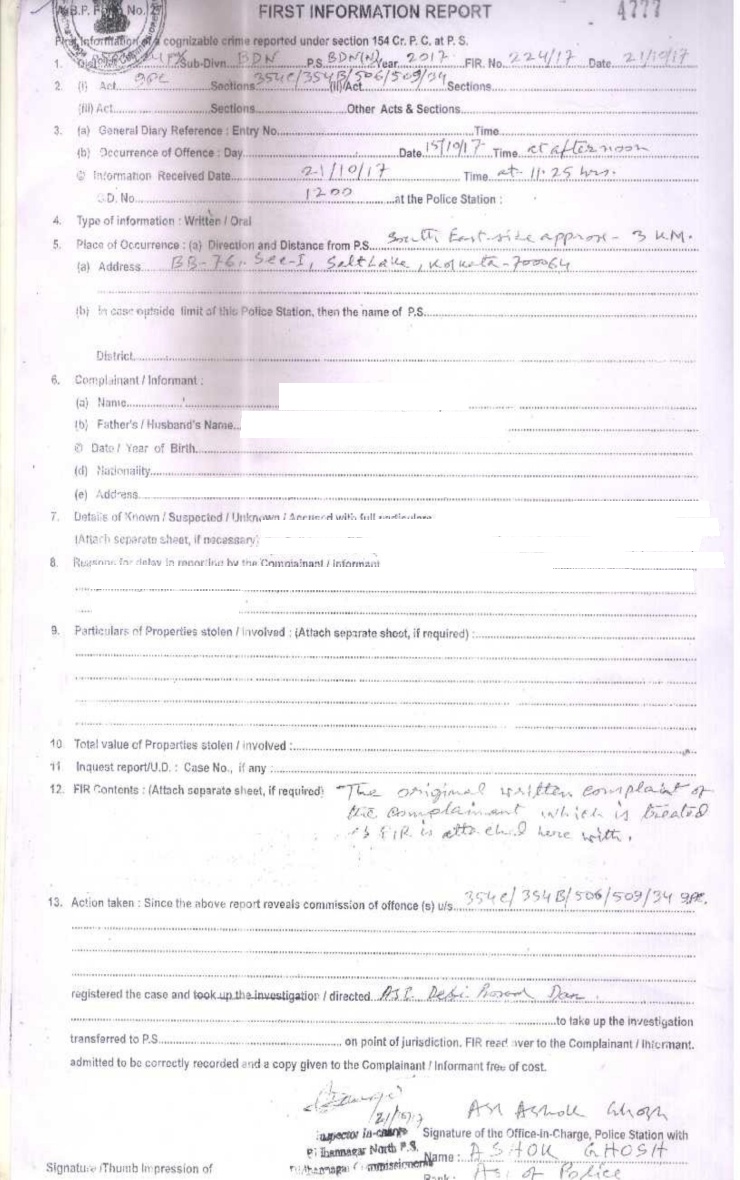 W.B.P. Form No. 27
FIRST INFORMATION REPORT
4777
First Information of a cognizable crime reported under section 154 Cr. P. C. at P. S.
1. Sub-Divn. BDN P.S. BDN(N) Year 2017 FIR. No. 224/17 Date 21/10/17
2. (i) Act IPC Sections 354C/354B/506/509/34 (ii) Act Sections
(iii) Act Sections Other Acts & Sections
3. (a) General Diary Reference : Entry No. Time
(b) Occurrence of Offence : Day Date 15/10/17 Time at afternoon
© Information Received Date 21/10/17 Time at 11.25 hrs.
G.D. No. 1200 at the Police Station :
4. Type of information : Written / Oral
5. Place of Occurrence : (a) Direction and Distance from P.S. South East side approx - 3 KM.
(a) Address BB-76, Sec-I, Salt Lake, Kolkata-700064
(b) In case outside limit of this Police Station, then the name of P.S.
District
6. Complainant / Informant :
(a) Name
(b) Father's / Husband's Name
© Date / Year of Birth
(d) Nationality
(e) Address
7. Details of Known / Suspected / Unknown / Accused with full particulars
(Attach separate sheet, if necessary)
8. Reasons for delay in reporting by the Complainant / Informant
9. Particulars of Properties stolen / involved : (Attach separate sheet, if required) :
10. Total value of Properties stolen / involved :
11. Inquest report/U.D. : Case No., if any :
12. FIR Contents : (Attach separate sheet, if required) The original written complaint of
the complainant which is treated
as FIR is attached here with.
13. Action taken : Since the above report reveals commission of offence (s) u/s 354C/354B/506/509/34 IPC.
registered the case and took up the investigation / directed ASI. Debi Prosad Das.
to take up the investigation
transferred to P.S. on point of jurisdiction. FIR read over to the Complainant / Informant.
admitted to be correctly recorded and a copy given to the Complainant / Informant free of cost.
21/10/17
ASI Ashok Ghosh
Inspector in-charge
Signature of the Office-in-Charge, Police Station with
Bidhannagar North P.S.
Name : ASHOK GHOSH
Bidhannagar Commissionerate
Signature /Thumb Impression of
Rank : ASI of Police